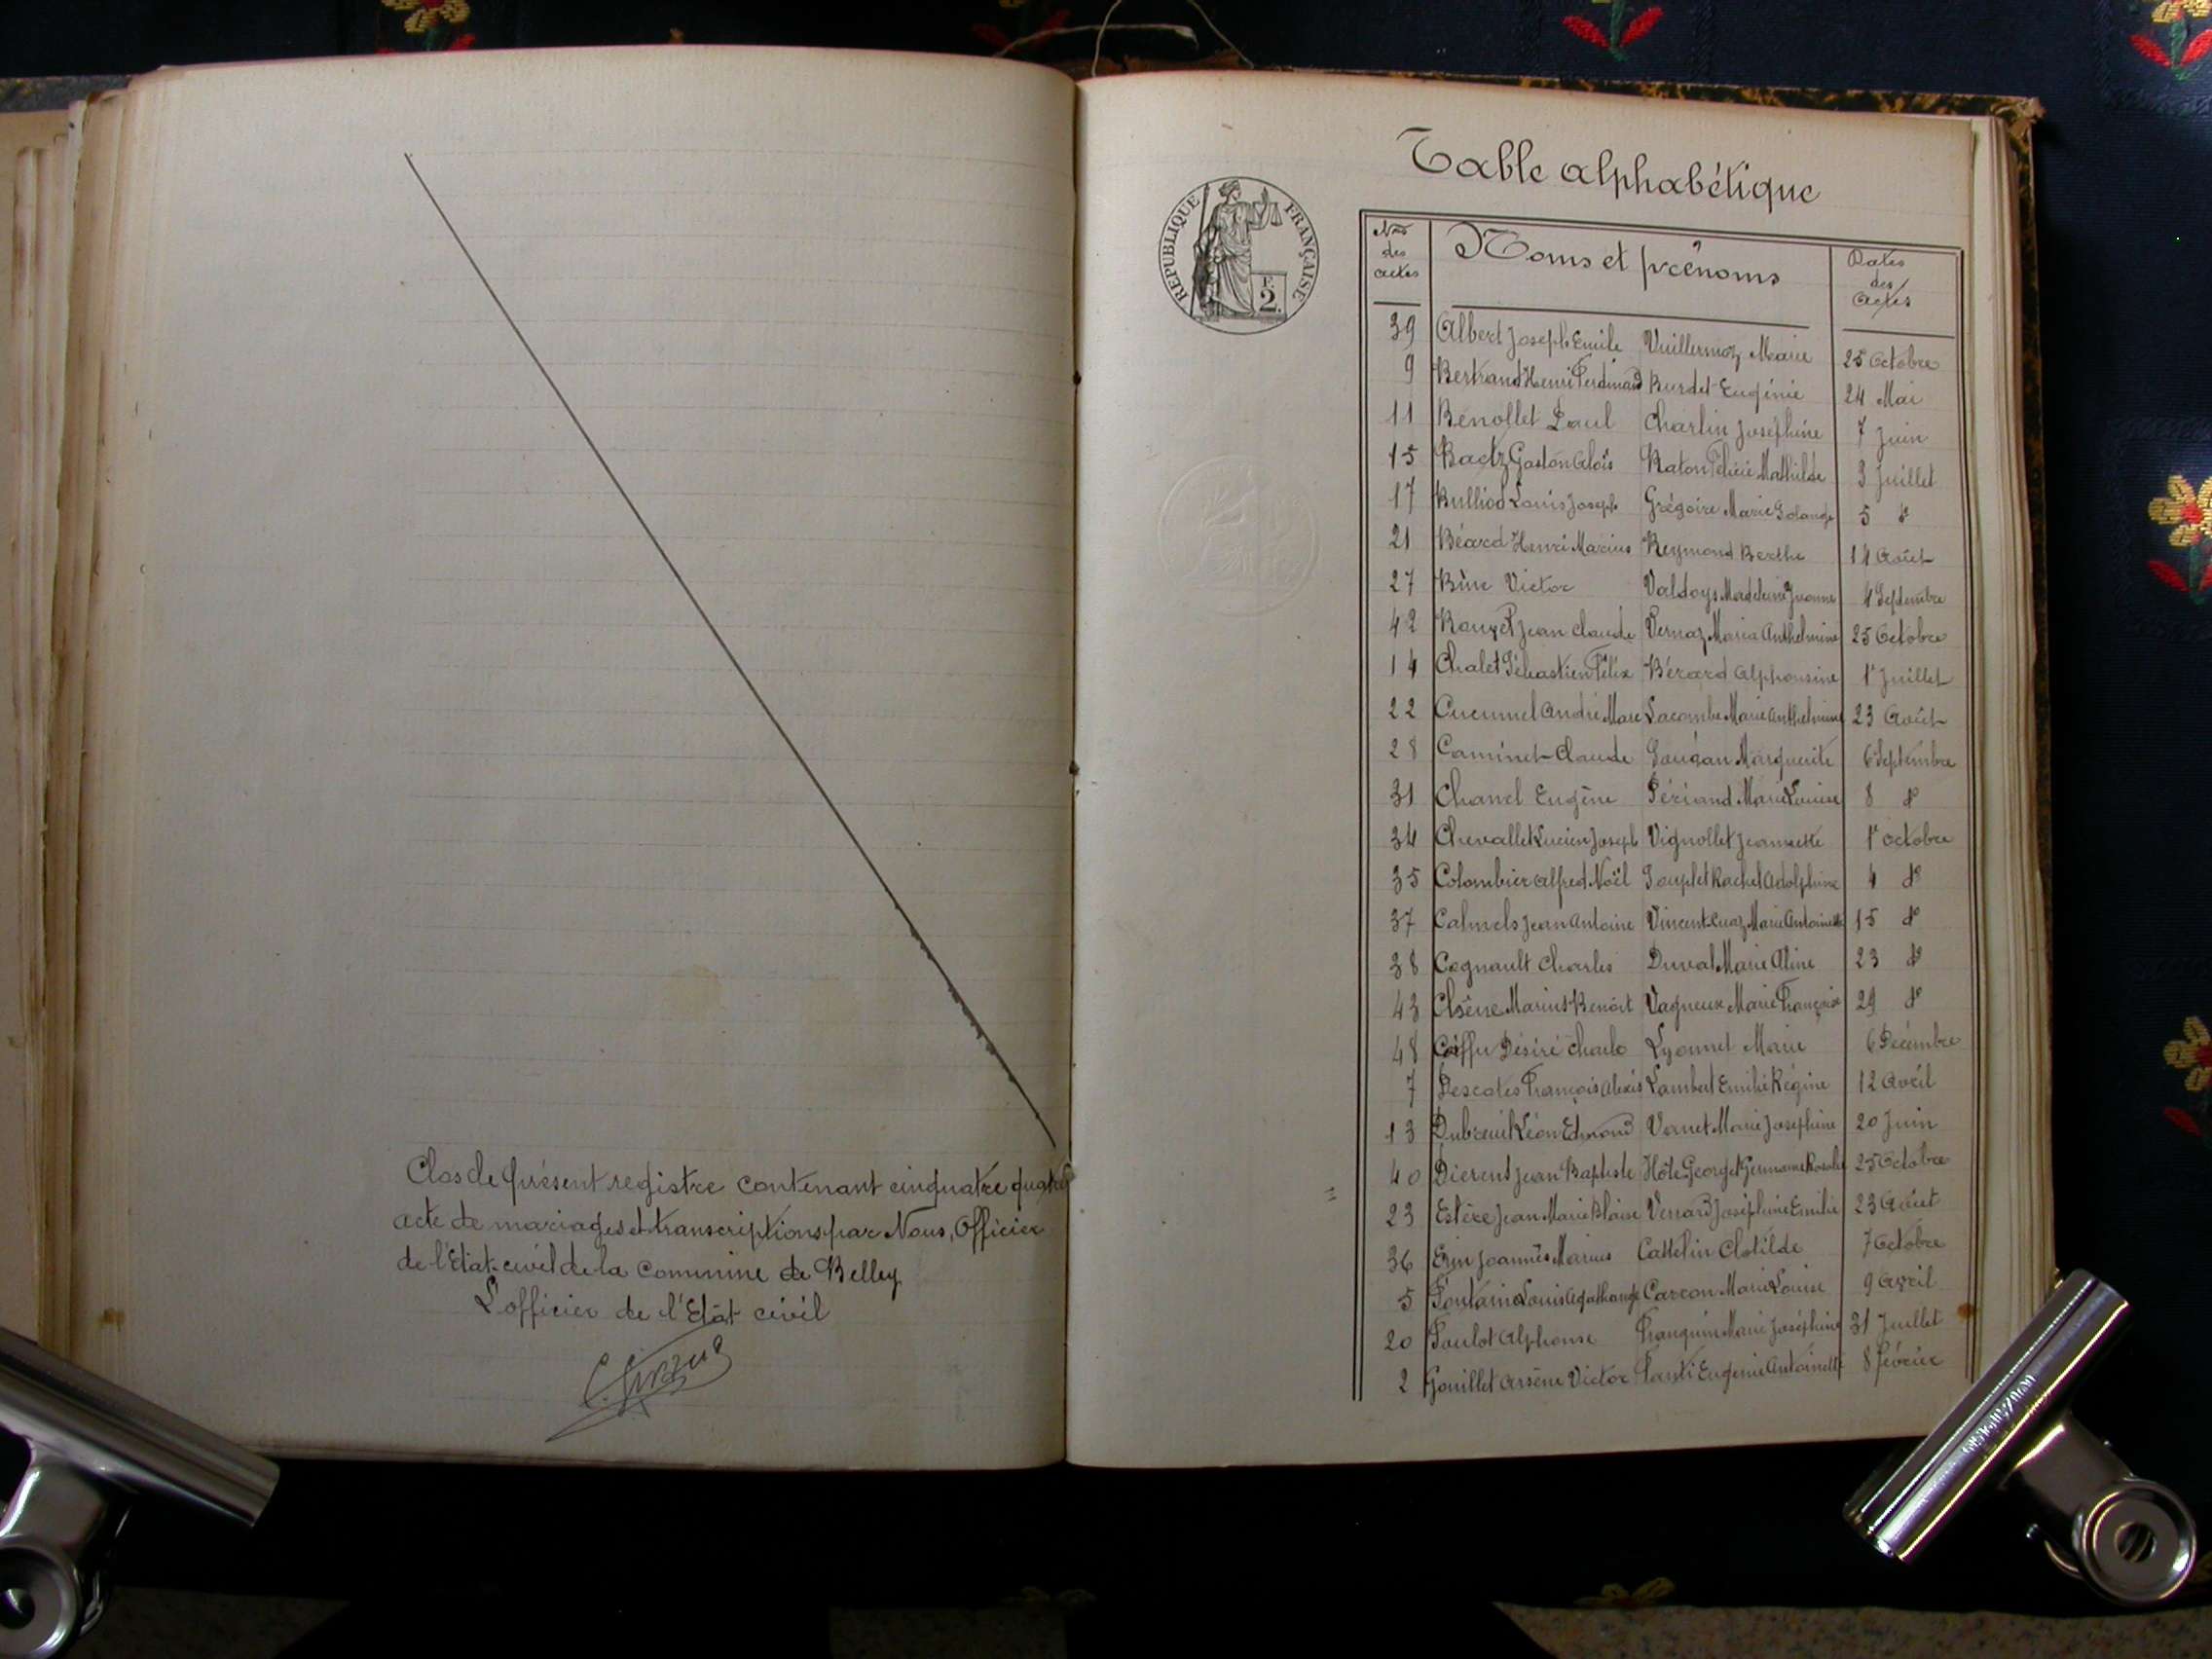 Clos le présent registre contenant cinquatre quatre
acte de mariages et transcriptions par Nous, Officier
de l'Etat-civil de la Commune de Belley
L'officier de l'Etat civil
Table alphabétique
RÉPUBLIQUE FRANÇAISE
F. 2.
Nos des actes Noms et prénoms Dates des Actes
39 Albert Joseph Emile Vuillermoz Marie 25 Octobre
9 Bertrand Henri Ferdinand Burdet Eugénie 24 Mai
11 Benollet Paul Charlin Joséphine 7 Juin
15 Baetz Gaston Aloïs Raton Félicie Mathilde 3 Juillet
17 Bulliod Louis Joseph Grégoire Marie 5 do
21 Béard Henri Marius Reymond Berthe 14 Août
27 Victor Madeleine Yvonne 4 Septembre
42 Jean Claude Vernaz Maria Anthelmine 25 Octobre
14 Chalet Sébastien Félix Bérard Alphonsine 1r Juillet
22 André Marc Lacombe Marie Anthelmine 23 Août
28 Caminet Claude Marguerite 6 Septembre
31 Chanel Eugène Marie Louise 8 do
34 Chevallet Lucien Joseph Vignollet Jeannette 1r Octobre
35 Colombier Alfred Noël Rachel Adolphine 4 do
37 Calmels Jean Antoine Marie Antoinette 15 do
38 Cognault Charles Duval Marie Aline 23 do
43 Marius Benoit Vagneux Marie Françoise 29 do
48 Désiré Charles Lyonnet Marie 6 Décembre
7 Descotes François Alexis Lambert Emilie Régine 12 Avril
13 Dubreuil Léon Edmond Marie Joséphine 20 Juin
40 Dierens Jean Baptiste Germaine 25 Octobre
23 Estère Jean Marie Blaise Joséphine Emilie 23 Août
36 Joannès Marius Cattelin Clotilde 7 Octobre
5 Fontaine Louis Agathange Carcon Marie Louise 9 Avril
20 Foulot Alphonse Franquin Marie Joséphine 31 Juillet
2 Gouillet Arsène Victor Eugénie Antoinette 8 février